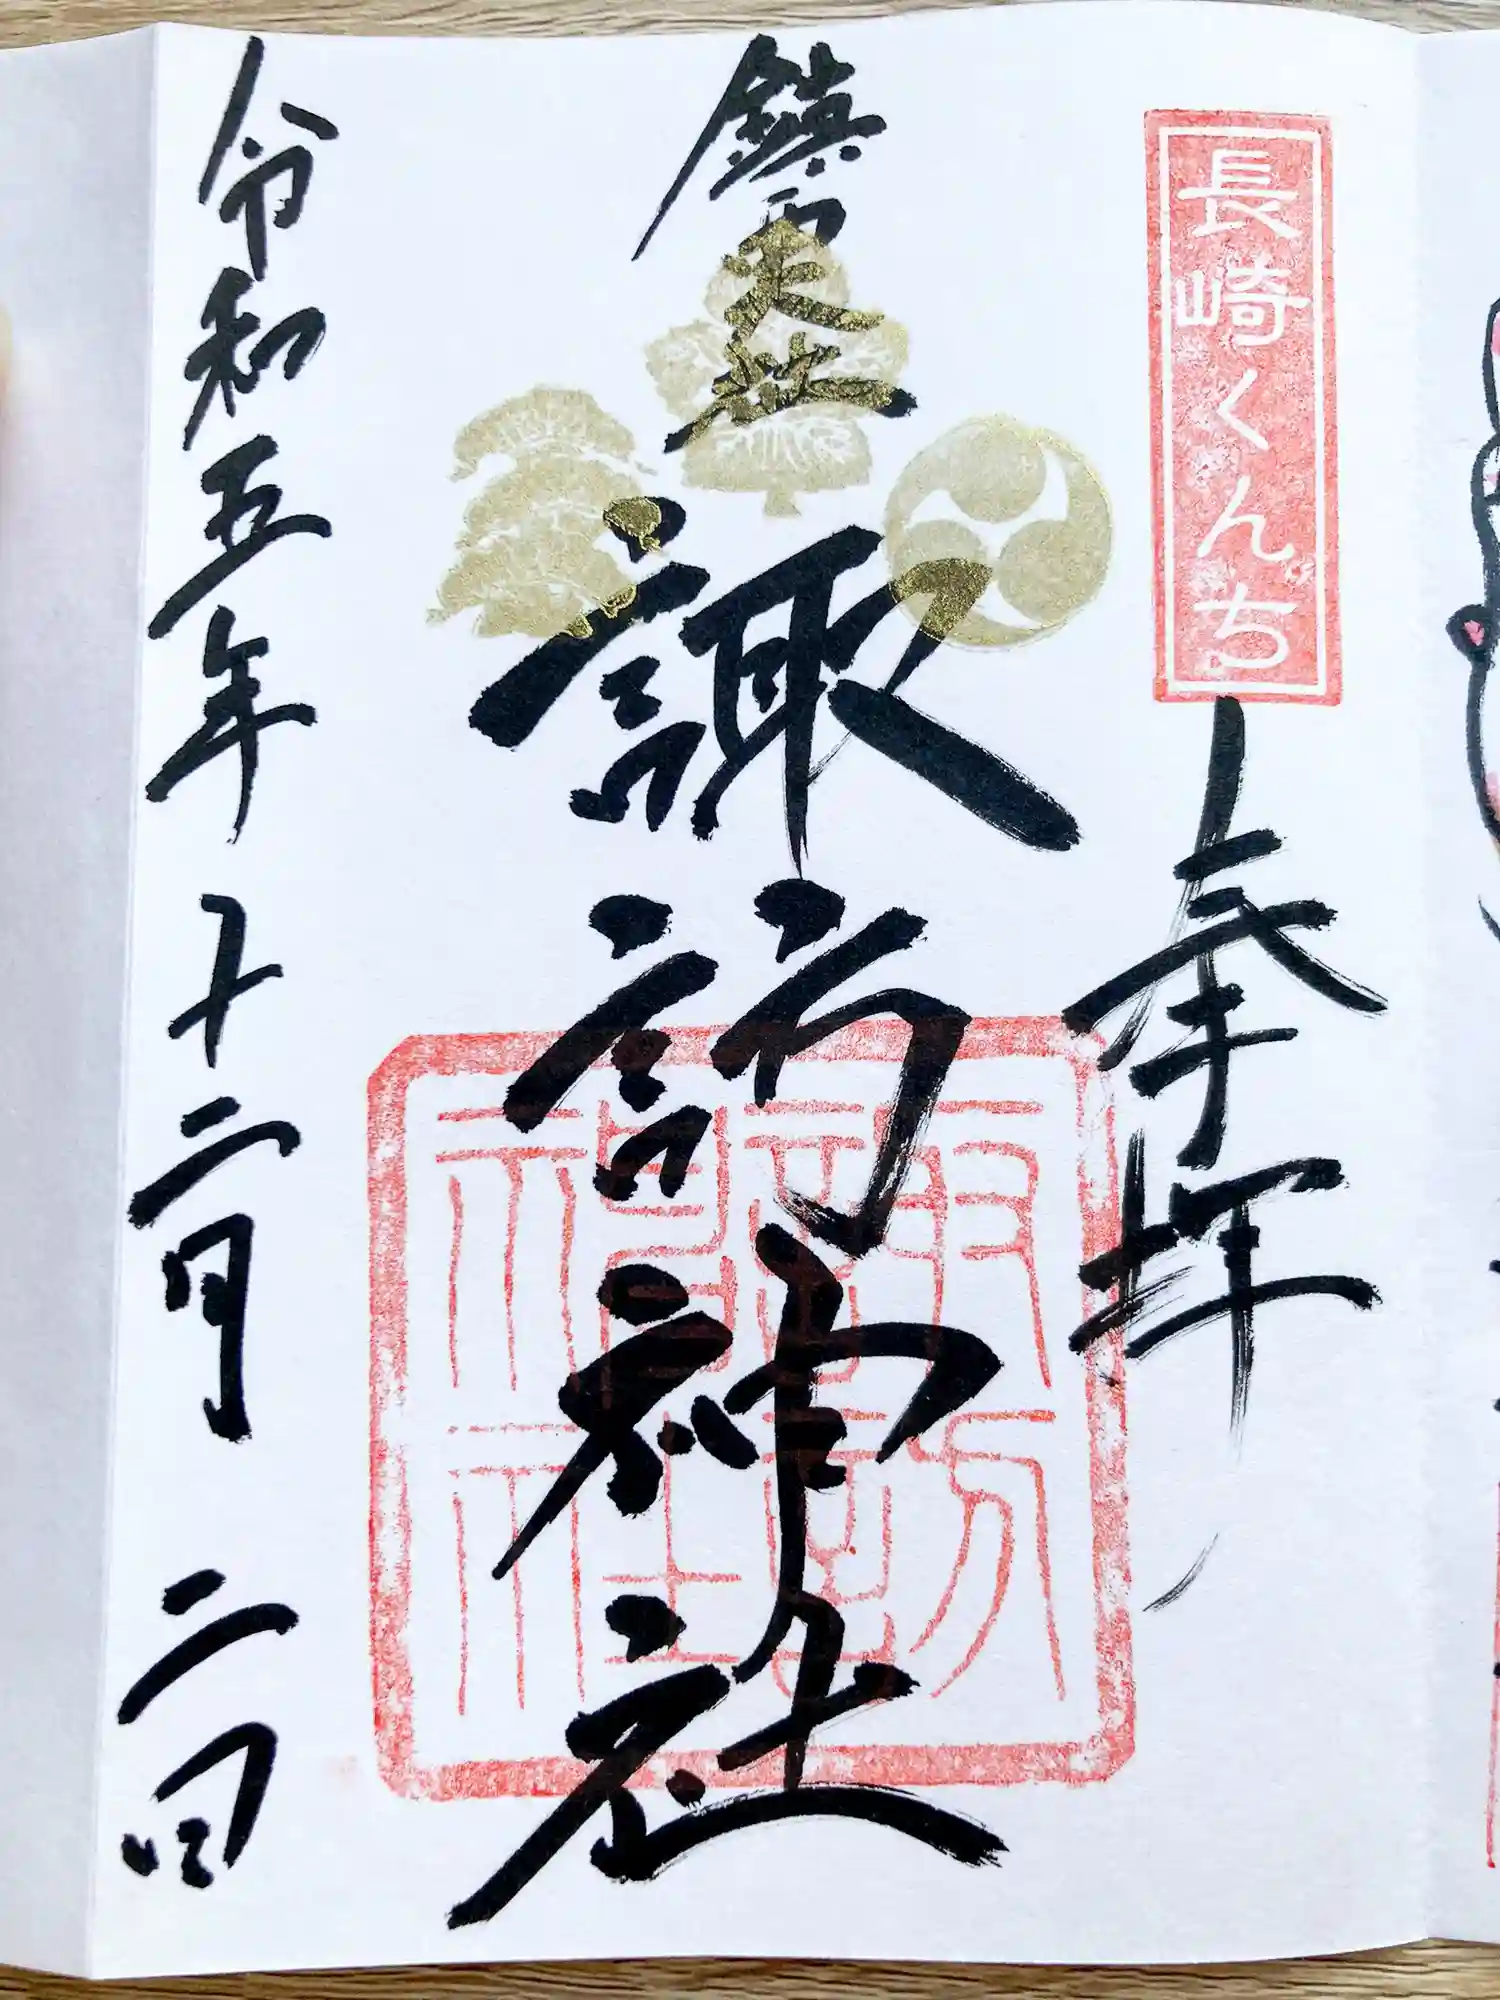 長崎くんち
奉拝
鎮西大社
諏訪神社
諏訪神社
令和五年十二月二日